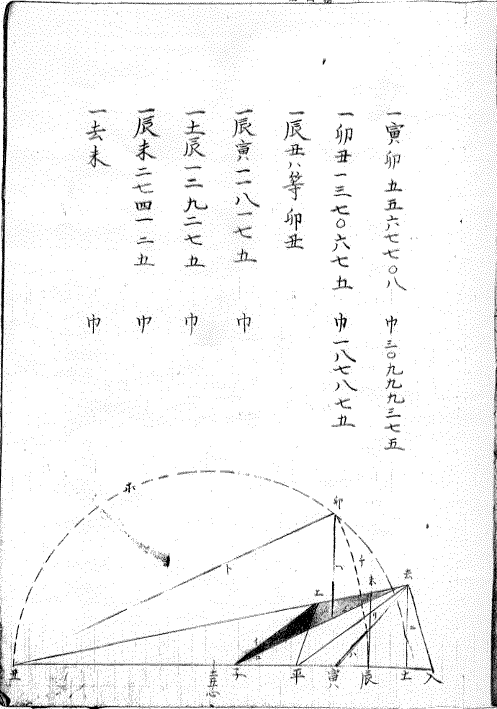 一寅卯五五六七七〇八 巾三〇九九九三七五
一卯丑一三七〇六七五 巾一八七八七五
一辰丑ハ等卯丑
一辰寅一一八一七五 巾
一土辰一二九二七五 巾
一辰未二七四一二五 巾
一去未 巾
卯
去
未
丑
子
平
寅
辰
土
入
ト
チ
リ
ホ